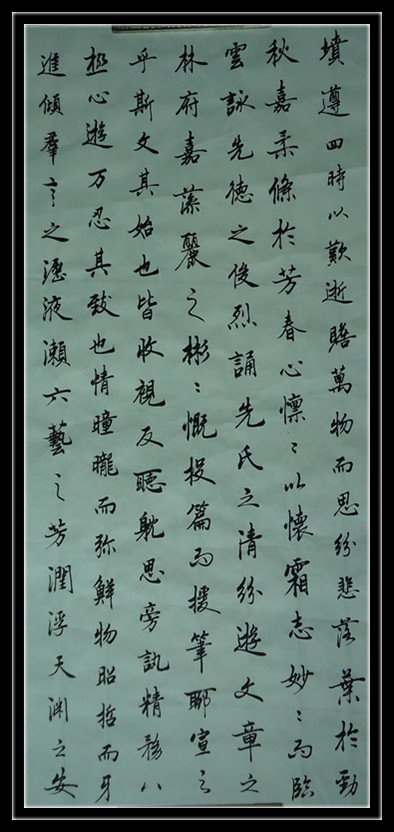 墳遵四時以歎逝瞻萬物而思紛悲落葉於勁
秋嘉柔條於芳春心懍〻以懷霜志妙〻而臨
雲詠先德之俊烈誦先氏之清紛遊文章之
林府嘉藻麗之彬〻慨投篇而援筆聊宣之
乎斯文其始也皆收視反聽躭思旁訊精騖八
極心遊万忍其致也情曈曨而弥鮮物昭晢而互
進傾羣言之瀝液瀨六藝之芳潤浮天淵之安